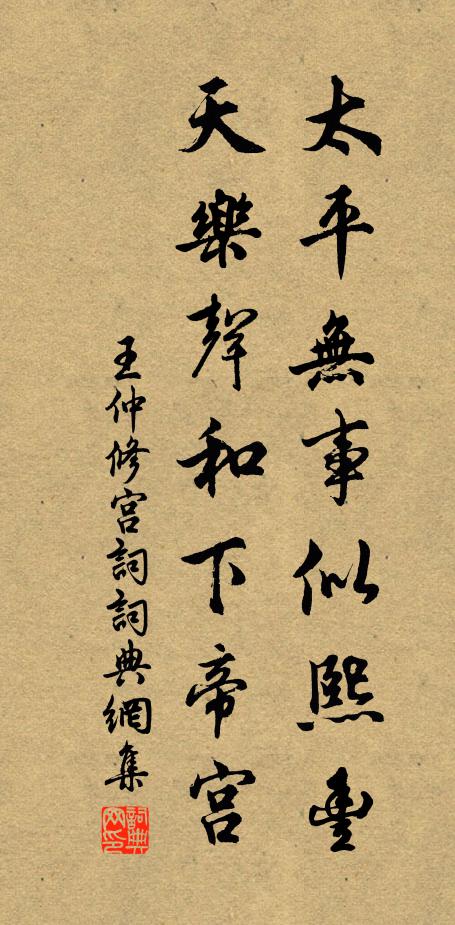 太平無事似熙豐
天樂聲和下帝宮
王仲修宮詞詞典網集
詞典网印